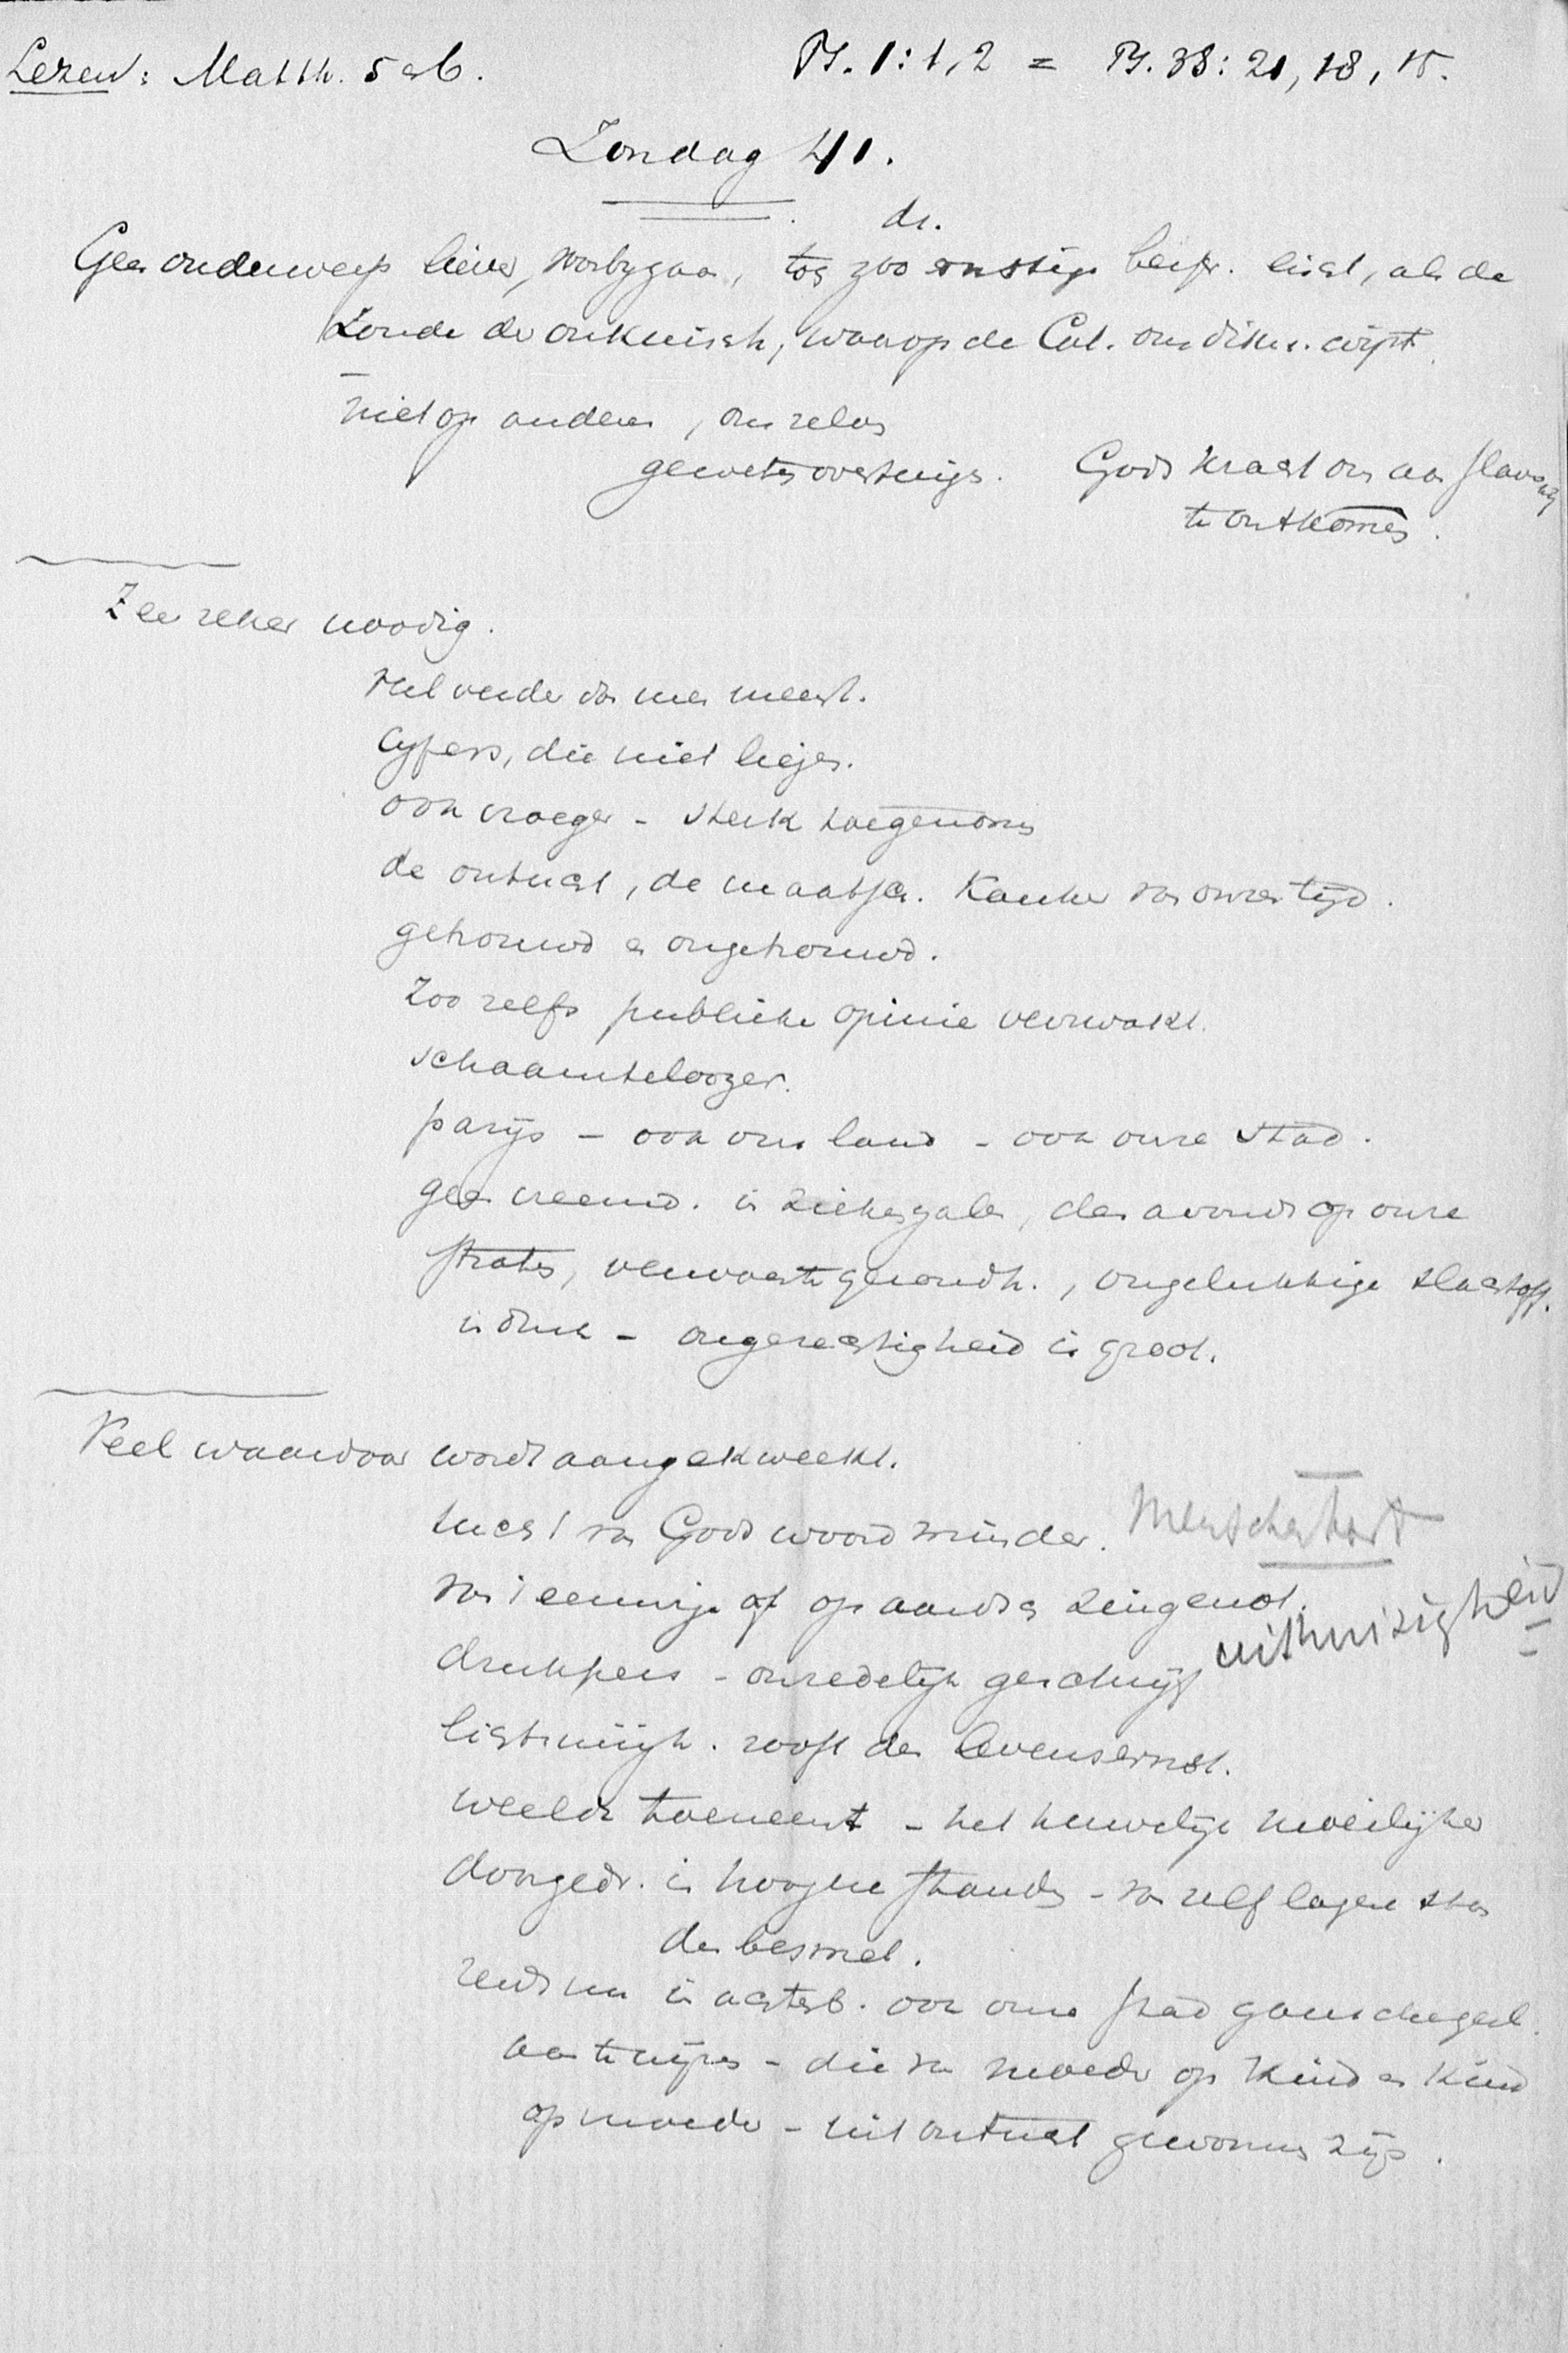 Lezen: Matth. 5 a b. Ps. 1:1,2 = Ps. 38: 21, 18, 15.
Zondag 41.
dr.
Geen onderwerp liever voorbygaan, toch zoo ernstige licht, als de
Zonde der onkuisch, waarop de Cat. ons wijst
niet op anderen, ons zelven
gewetensovertuig. Gods kracht om aan slavernij
te ontkomen.
Zeer zeker noodig.
veel verder dan men meent.
Cyfers, die niet liegen.
ook vroeger - sterk toegenomen
de ontucht, de maatsch. Kanker van onzen tijd.
getrouwd en ongetrouwd.
Zoo zelfs publieke opinie verzwakt.
schaamteloozer.
parijs - ook ons land - ook onze stad.
geen vreemd. in ziekenzalen, des avonds op onze
straten, verwoeste gezondh., ongelukkige slachtoff.
in druk - ongerechtigheid is groot.
Veel waardoor wordt aangekweekt.
tucht van Gods woord minder. Menschenhart
van 't eeuwige af op aardsch zingenot.
uithuizigheid
drukpers - onzedelijk geschrijf
lichtzinnigh. rooft den levensernst.
weelde toeneemt - het huwelijk moeilijker
doorgedr. in hoogere standen - van zelf lagere stan
den besmet.
zijn in achterb. ook onze stad gansche gesl.
aan te wijzen - die van moeder op kind en kind
op moeder - uit ontucht gewonnen zijn.